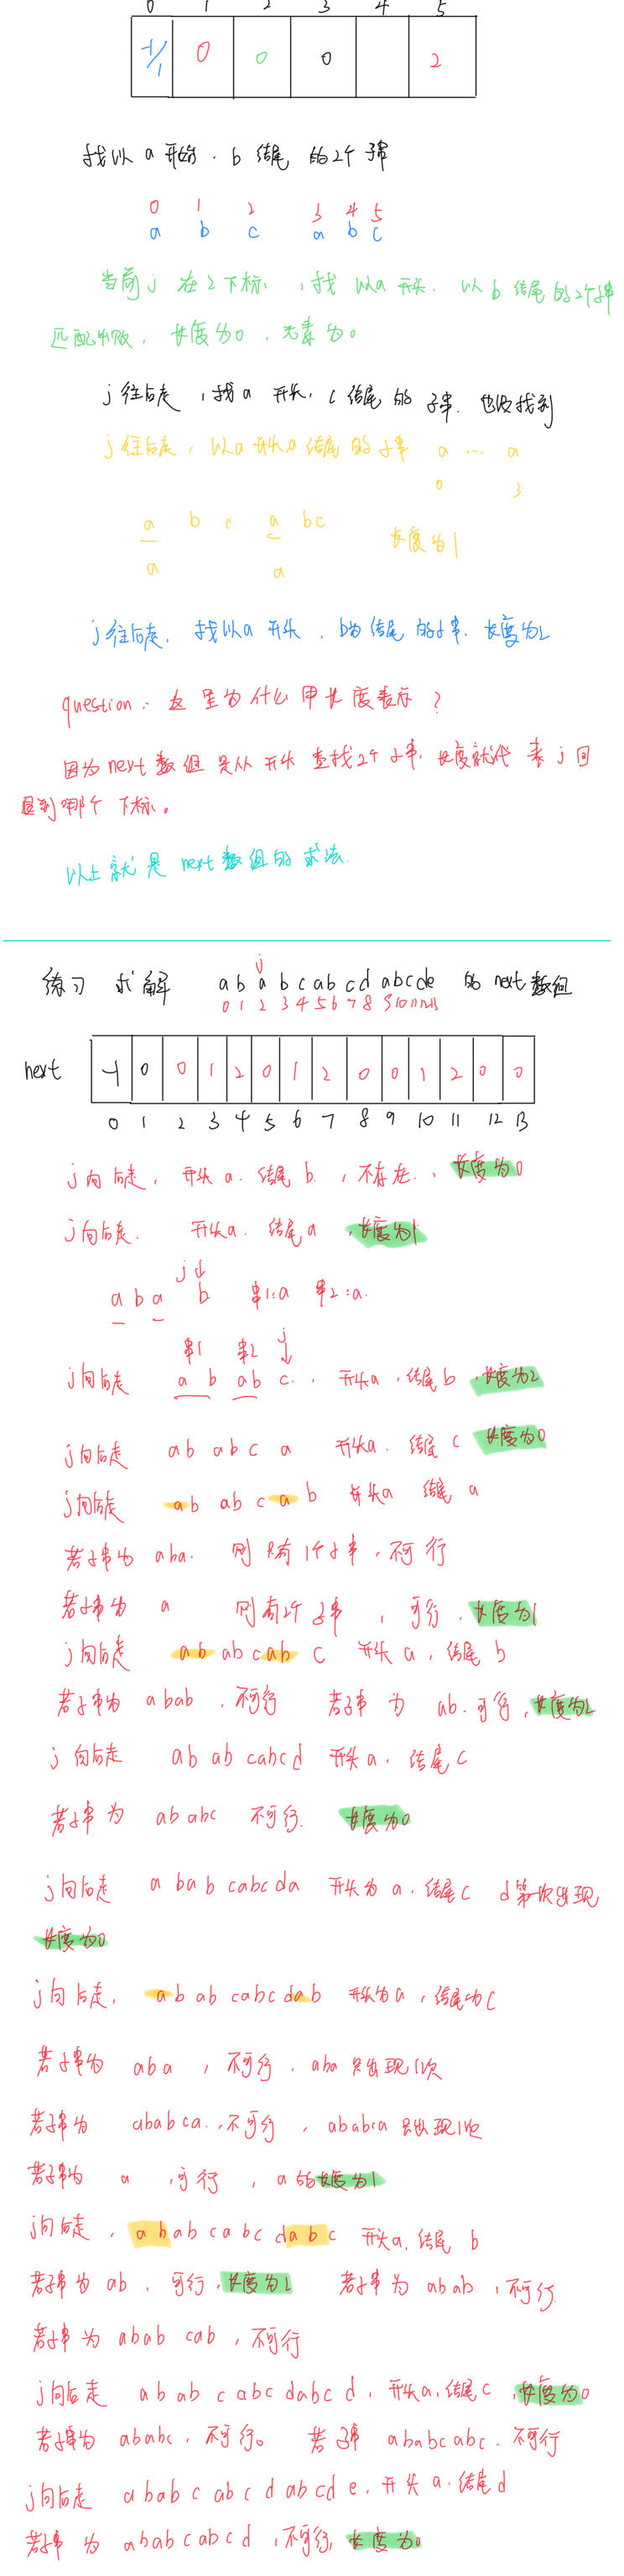 0 1 2 3 4 5
-1 0 0 0 2
找以 a 开始, b 结尾 的2个 子串
0 1 2 3 4 5
a b c a b c
当前 j 在 2 下标, 找 以a 开头, 以 b 结尾 的2个子串
匹配失败, 长度为0, 元素为0
j 往后走, 找 a 开头, c 结尾 的 子串. 也没找到
j 往后走, 以a 开头 a 结尾 的 子串 a … a
0 3
a b c a bc 长度为1
a a
j 往后走, 找以a 开头, b为 结尾 的子串. 长度为2
question: 这里为什么 用长度表示?
因为 next 数组 是从 开头 查找2个 子串, 长度就代表 j 回
退到哪个 下标。
以上 就是 next 数组的 求法.
j
练习 求解 ab a b c ab c d abcde 的 next 数组
0 1 2 3 4 5 6 7 8 9 10 11 12 13
next -1 0 0 1 2 0 1 2 0 0 1 2 0 0
0 1 2 3 4 5 6 7 8 9 10 11 12 13
j 向后走, 开头 a. 结尾 b, 不存在, 长度为0
j 向后走. 开头a. 结尾 a, 长度为1
j↓
a b a b 串1:a 串2:a.
串1 串2 j
j 向后走 a b ab c., 开头a, 结尾 b, 长度为2
j 向后走 ab ab c a 开头a. 结尾 c 长度为0
j 向后走 ab ab c a b 开头a 结尾 a
若子串为 aba. 则 只有 1个子串, 不可行
若子串为 a 则 有2个 子串, 可行, 长度为1
j 向后走 ab ab cab c 开头 a, 结尾 b
若子串为 abab, 不可行 若子串 为 ab. 可行, 长度为2
j 向后走 ab ab cabcd 开头 a. 结尾 c
若子串 为 ab abc 不可行. 长度为0
j 向后走 a bab cabc da 开头为 a. 结尾 c d第一次出现
长度为0
j 向后走, ab ab cabc dab 开头为 a, 结尾为 c
若子串为 aba, 不可行, aba 只出现1次
若子串为 ababca., 不可行, ababca 只出现1次
若子串为 a, 可行, a 的长度为1
j 向后走, ab ab c a bc dab c 开头 a, 结尾 b
若子串为 ab, 可行, 长度为2 若子串为 abab, 不可行.
若子串 为 abab cab, 不可行
j 向后走 ab ab c abc dabc d, 开头 a, 结尾 c, 长度为0
若子串为 ababc, 不可行。 若 子串 ababcabc. 不可行
j 向后走 a bab c abc d abcd e, 开头 a. 结尾 d
若子串 为 ababcabcd, 不可行, 长度为0